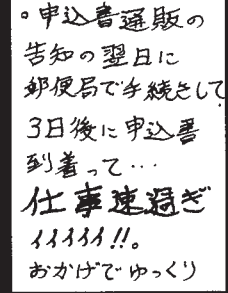 。申込書通販の
告知の翌日に
郵便局で手続きして
3日後に申込書
到着って…
仕事速過ぎ
イイイイイ!!。
おかげでゆっくり